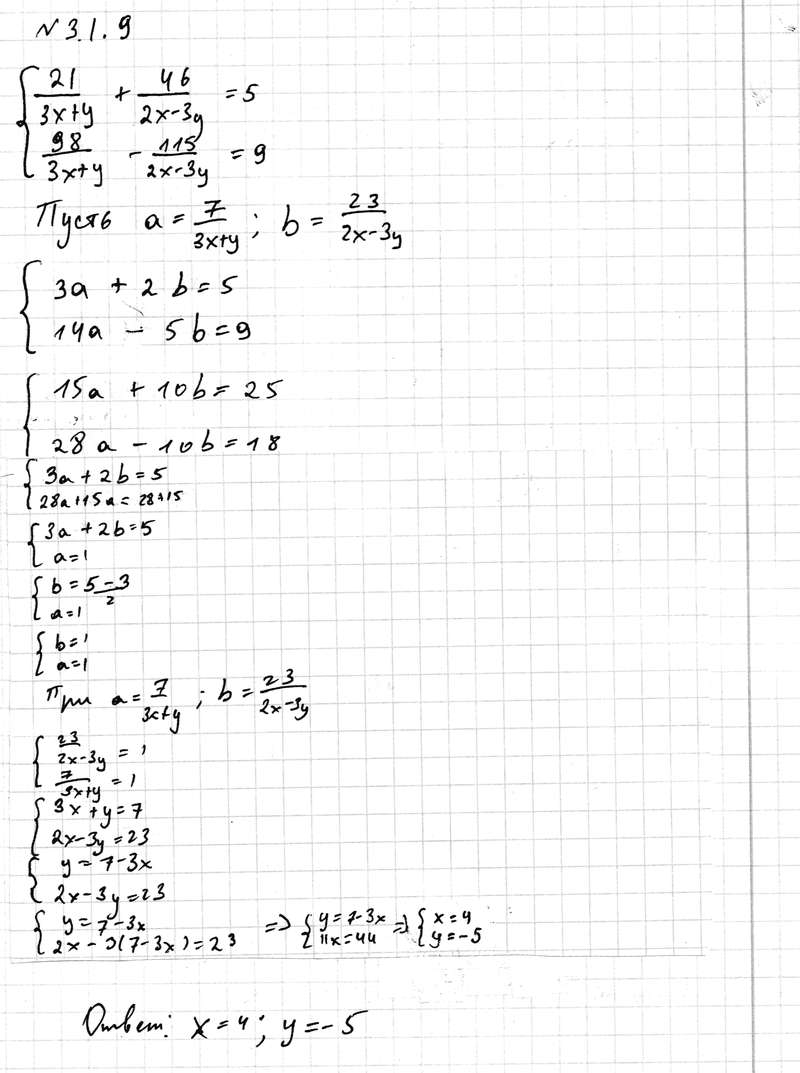 N 3.1.9
{ 21/(3x+y) + 46/(2x-3y) = 5
98/(3x+y) - 115/(2x-3y) = 9
Пусть a = 7/(3x+y); b = 23/(2x-3y)
{ 3a + 2b = 5
14a - 5b = 9
{ 15a + 10b = 25
28a - 10b = 18
{ 3a + 2b = 5
28a + 15a = 28+15
{ 3a + 2b = 5
a = 1
{ b = (5-3)/2
a = 1
{ b = 1
a = 1
При a = 7/(3x+y); b = 23/(2x-3y)
{ 23/(2x-3y) = 1
7/(3x+y) = 1
{ 3x + y = 7
2x - 3y = 23
{ y = 7 - 3x
2x - 3y = 23
{ y = 7 - 3x => { y = 7 - 3x => { x = 4
2x - 3(7 - 3x) = 23 11x = 44 y = -5
Ответ: x = 4; y = -5